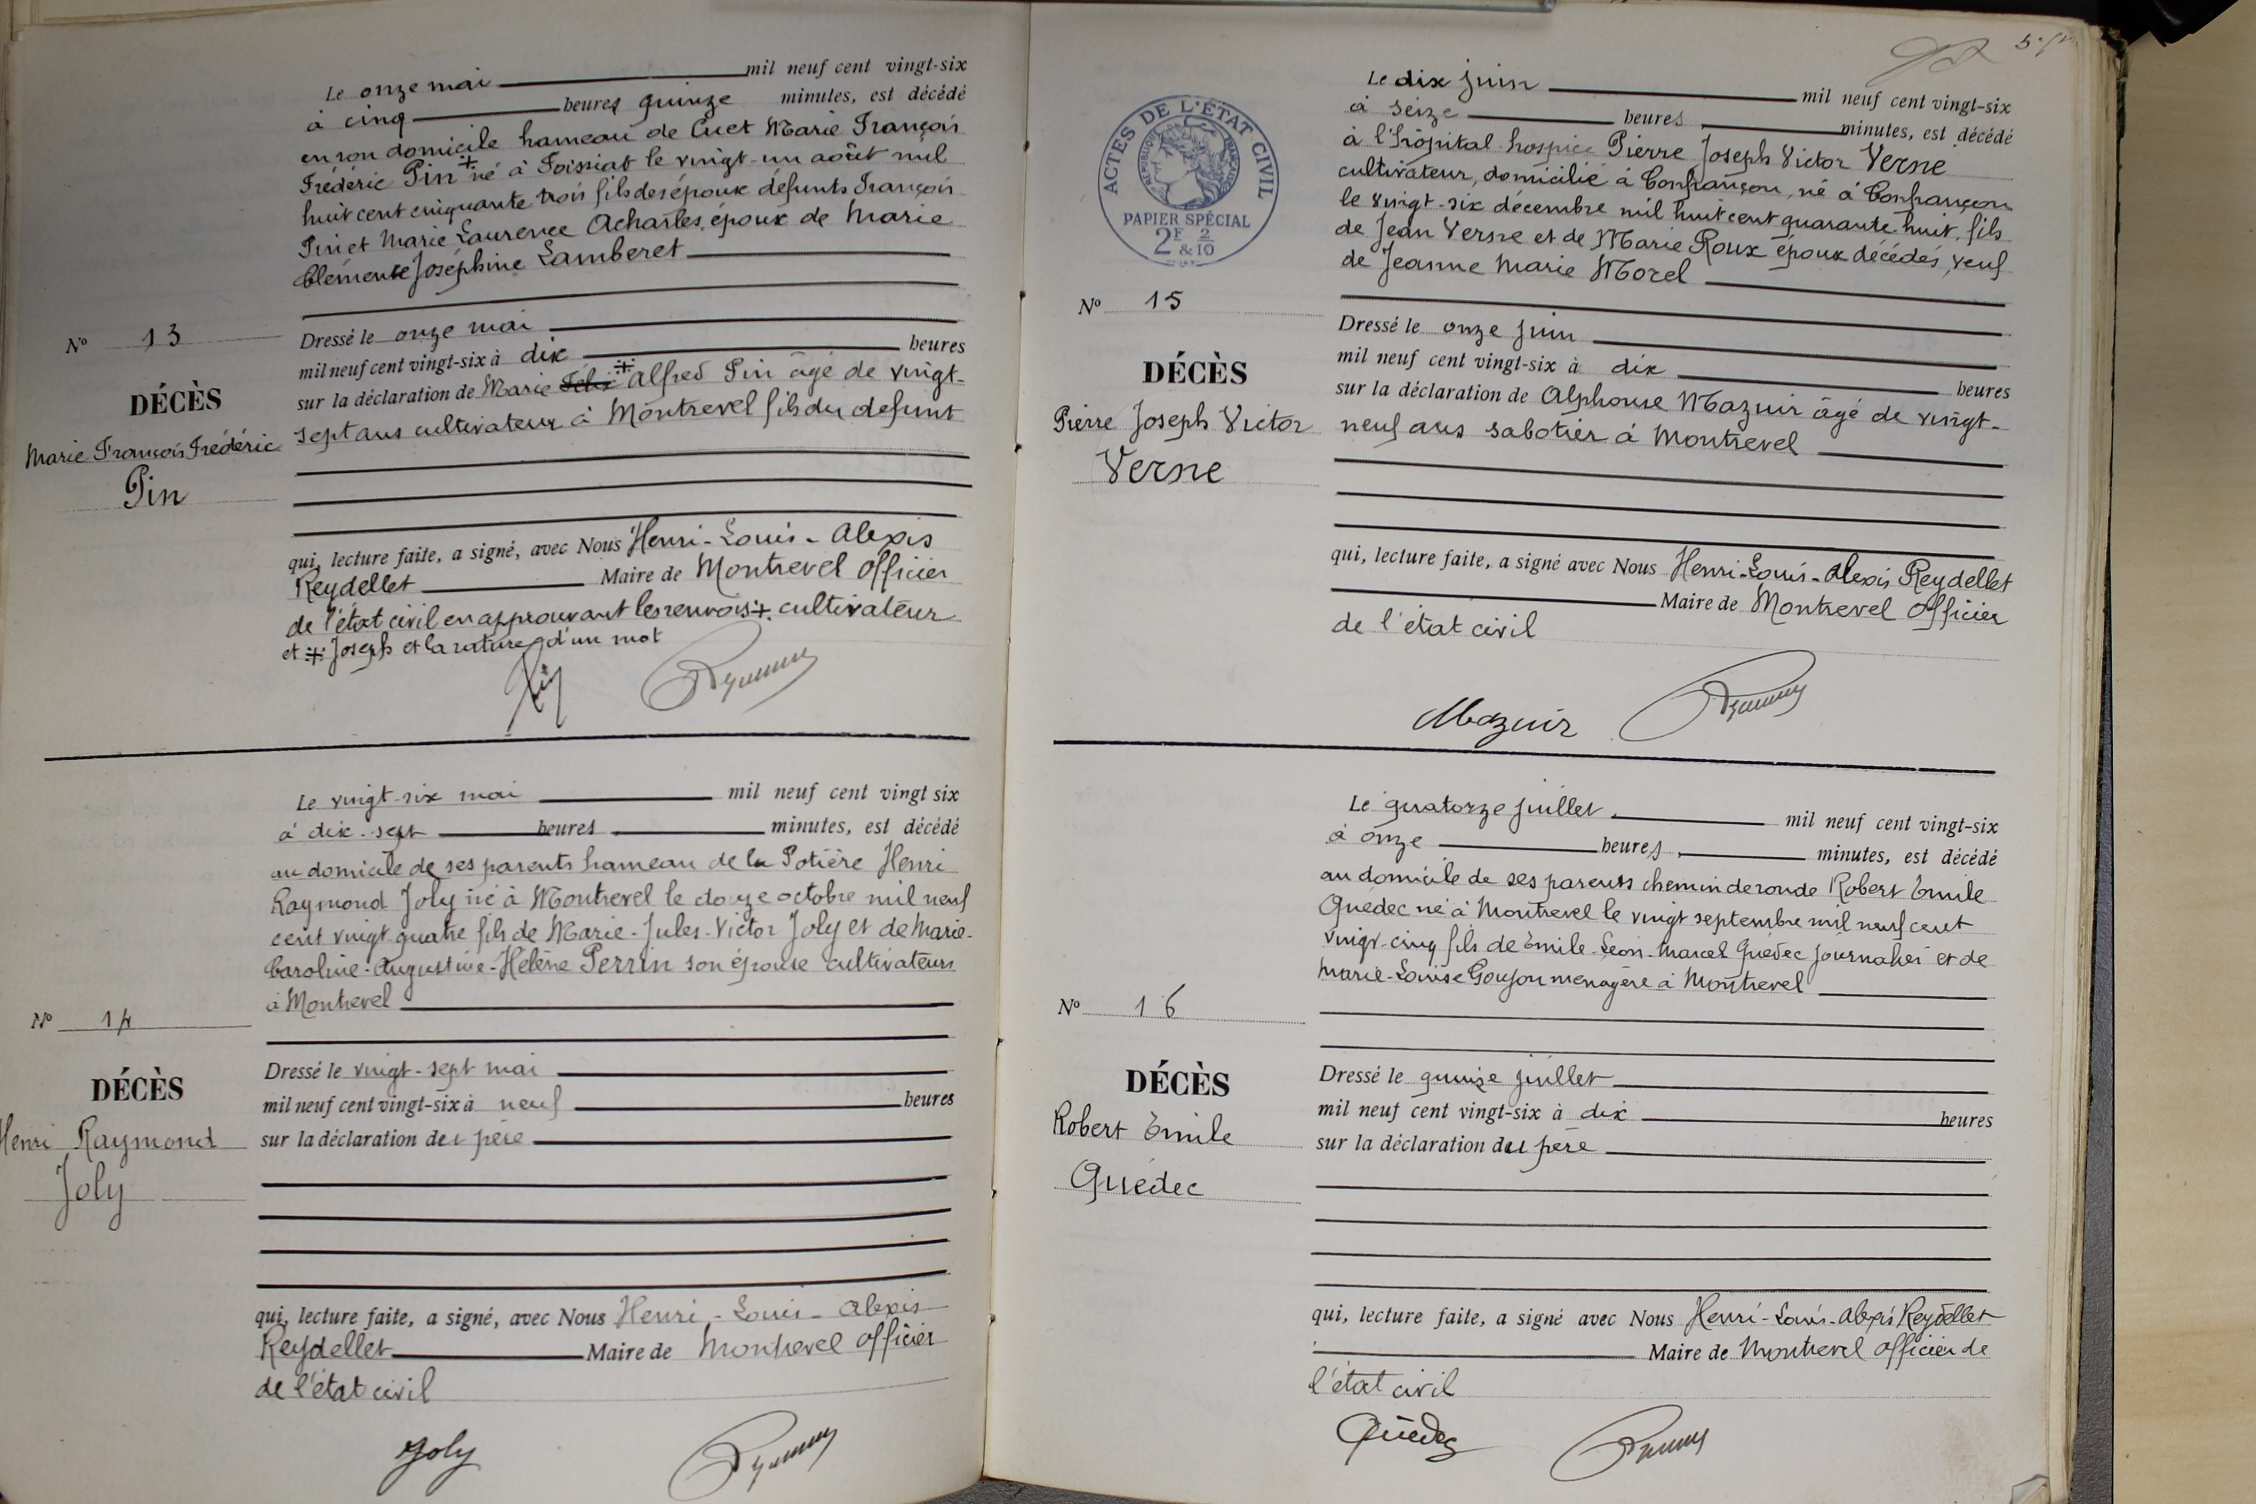 Le onze mai mil neuf cent vingt-six
à cinq heures quinze minutes, est décédé
en son domicile hameau de Cuet Marie François
Frédéric Pin + né à Foissiat le vingt-un août mil
huit cent cinquante trois fils des époux défunts François
Pin et Marie Laurence Acharles, époux de Marie
Clémence Joséphine Lamberet
N° 13
DÉCÈS
Marie François Frédéric
Pin
Dressé le onze mai
mil neuf cent vingt-six à dix heures
sur la déclaration de Marie Félix Alfred Pin âgé de vingt-
sept ans cultivateur à Montrevel fils du defunt
qui, lecture faite, a signé, avec Nous Henri-Louis-Alexis
Reydellet Maire de Montrevel officier
de l'état civil en approuvant les renvois + cultivateur
et Joseph et la rature d'un mot
Pin
Le vingt-six mai mil neuf cent vingt six
à dix-sept heures minutes, est décédé
au domicile de ses parents hameau de la Potière Henri
Raymond Joly né à Montrevel le douze octobre mil neuf
cent vingt quatre fils de Marie-Jules-Victor Joly et de Marie-
Caroline-Augustine-Hélène Perrin son épouse cultivateurs
à Montrevel
N° 14
DÉCÈS
Henri Raymond
Joly
Dressé le vingt-sept mai
mil neuf cent vingt-six à neuf heures
sur la déclaration du père
qui, lecture faite, a signé, avec Nous Henri-Louis-Alexis
Reydellet Maire de Montrevel officier
de l'état civil
Joly
ACTES DE L'ÉTAT CIVIL
RÉPUBLIQUE FRANÇAISE
PAPIER SPÉCIAL
2F & 2/10
Le dix juin mil neuf cent vingt-six
à seize heures minutes, est décédé
à l'hôpital-hospice Pierre Joseph Victor Verne
cultivateur, domicilié à Confrançon, né à Confrançon
le vingt-six décembre mil huit cent quarante huit, fils
de Jean Verne et de Marie Roux époux décédés, veuf
de Jeanne Marie Morel
N° 15
DÉCÈS
Pierre Joseph Victor
Verne
Dressé le onze juin
mil neuf cent vingt-six à dix heures
sur la déclaration de Alphonse Mazuir âgé de vingt-
neuf ans sabotier à Montrevel
qui, lecture faite, a signé avec Nous Henri-Louis-Alexis Reydellet
Maire de Montrevel Officier
de l'état civil
Mazuir
Le quatorze juillet mil neuf cent vingt-six
à onze heures, minutes, est décédé
au domicile de ses parents chemin de ronde Robert Émile
Quédec né à Montrevel le vingt septembre mil neuf cent
vingt-cinq fils de Émile-Léon-Marcel Quédec journalier et de
Marie-Louise Goujon ménagère à Montrevel
N° 16
DÉCÈS
Robert Émile
Quédec
Dressé le quinze juillet
mil neuf cent vingt-six à dix heures
sur la déclaration du père
qui, lecture faite, a signé avec Nous Henri-Louis-Alexis Reydellet
Maire de Montrevel officier de
l'état civil
Quédec